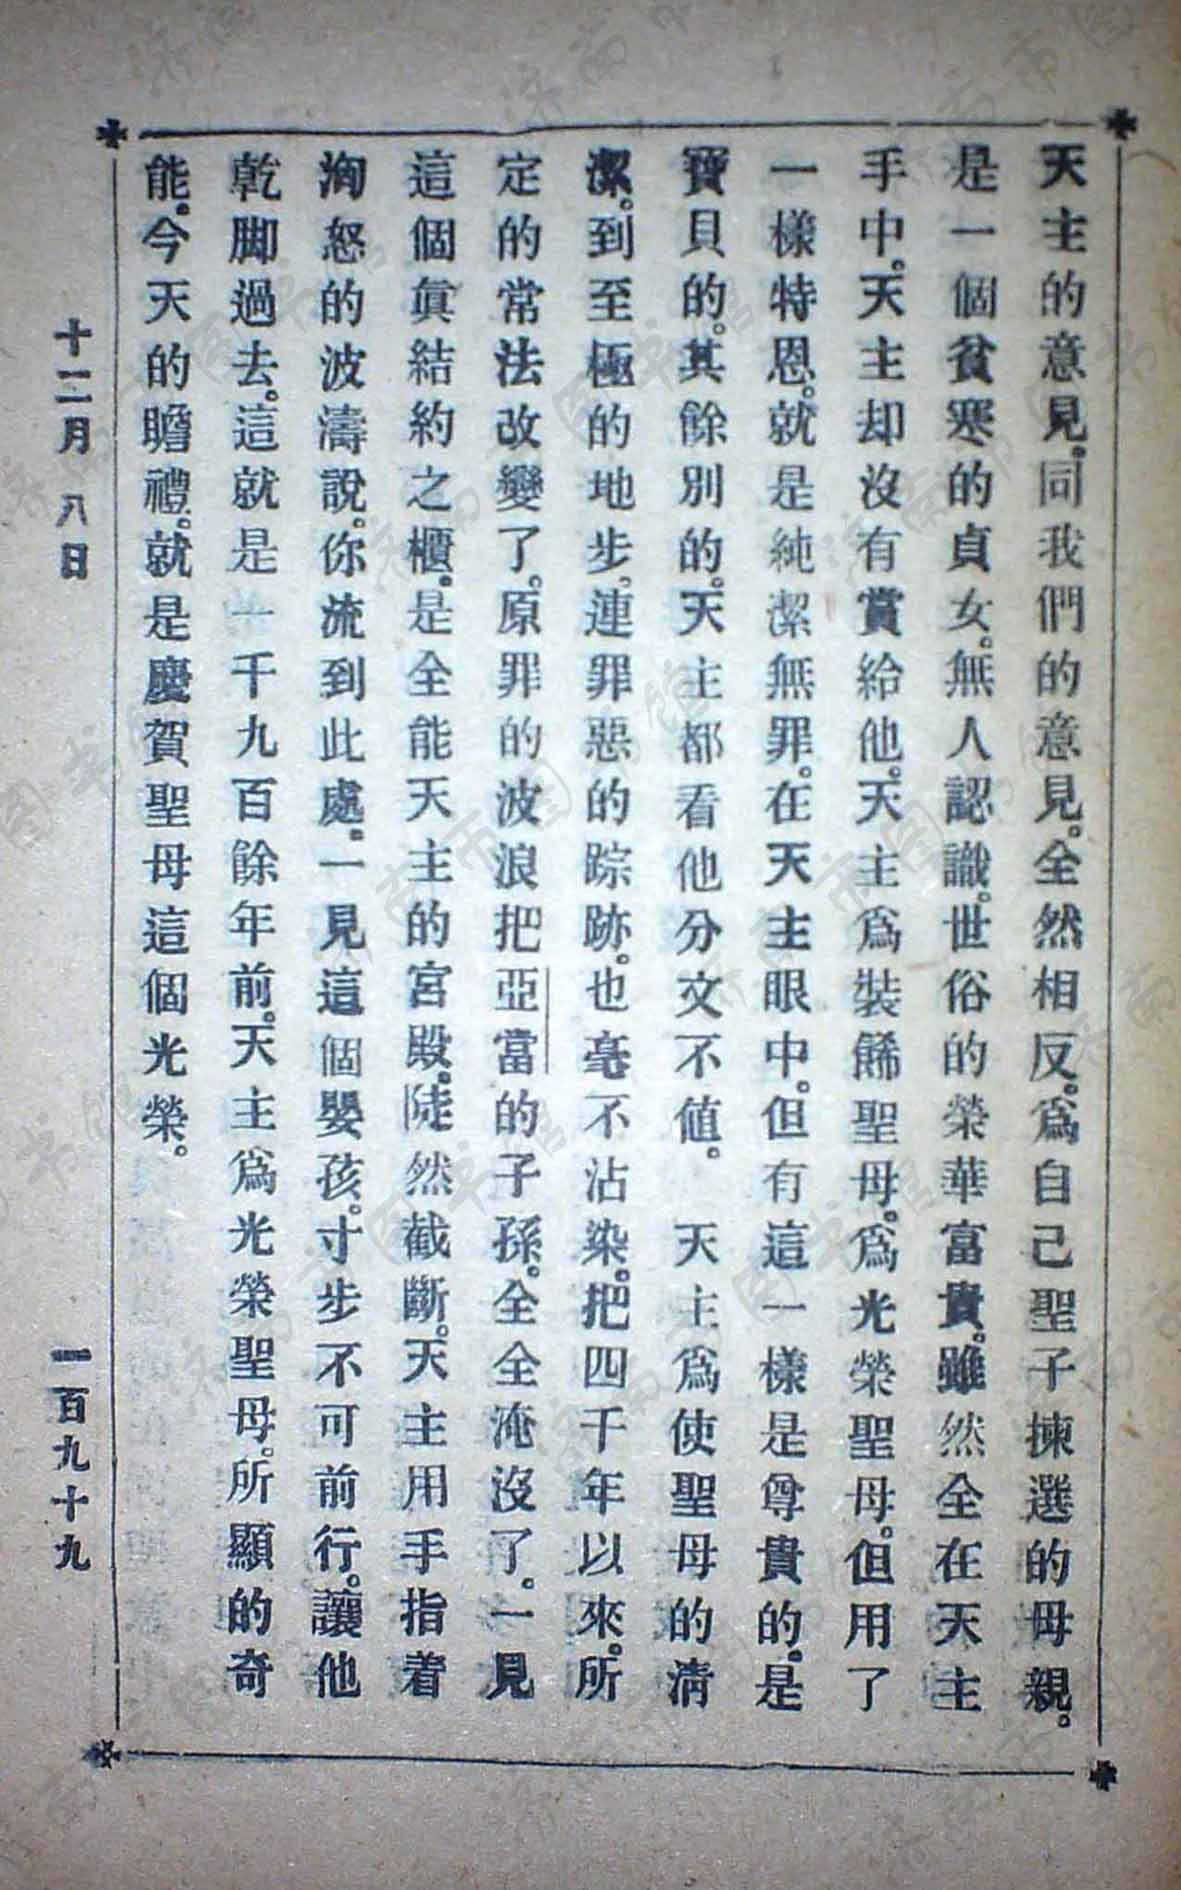 天主的意見。同我們的意見。全然相反。爲自己聖子揀選的母親。
是一個貧寒的貞女。無人認識。世俗的榮華富貴。雖然全在天主
手中。天主却沒有賞給他。天主爲裝餙聖母。爲光榮聖母。但用了
一樣特恩。就是純潔無罪。在天主眼中。但有這一樣是尊貴的。是
寶貝的。其餘別的。天主都看他分文不値。 天主爲使聖母的清
潔。到至極的地步。連罪惡的踪跡。也毫不沾染。把四千年以來。所
定的常法改變了。原罪的波浪把亞當的子孫。全全淹沒了。一見
這個眞結約之櫃。是全能天主的宮殿。陡然截斷。天主用手指着
洶怒的波濤說。你流到此處。一見這個嬰孩。寸步不可前行。讓他
乾脚過去。這就是一千九百餘年前。天主爲光榮聖母。所顯的奇
能。今天的瞻禮。就是慶賀聖母這個光榮。
十二月 八日
一百九十九
濟南市图书馆